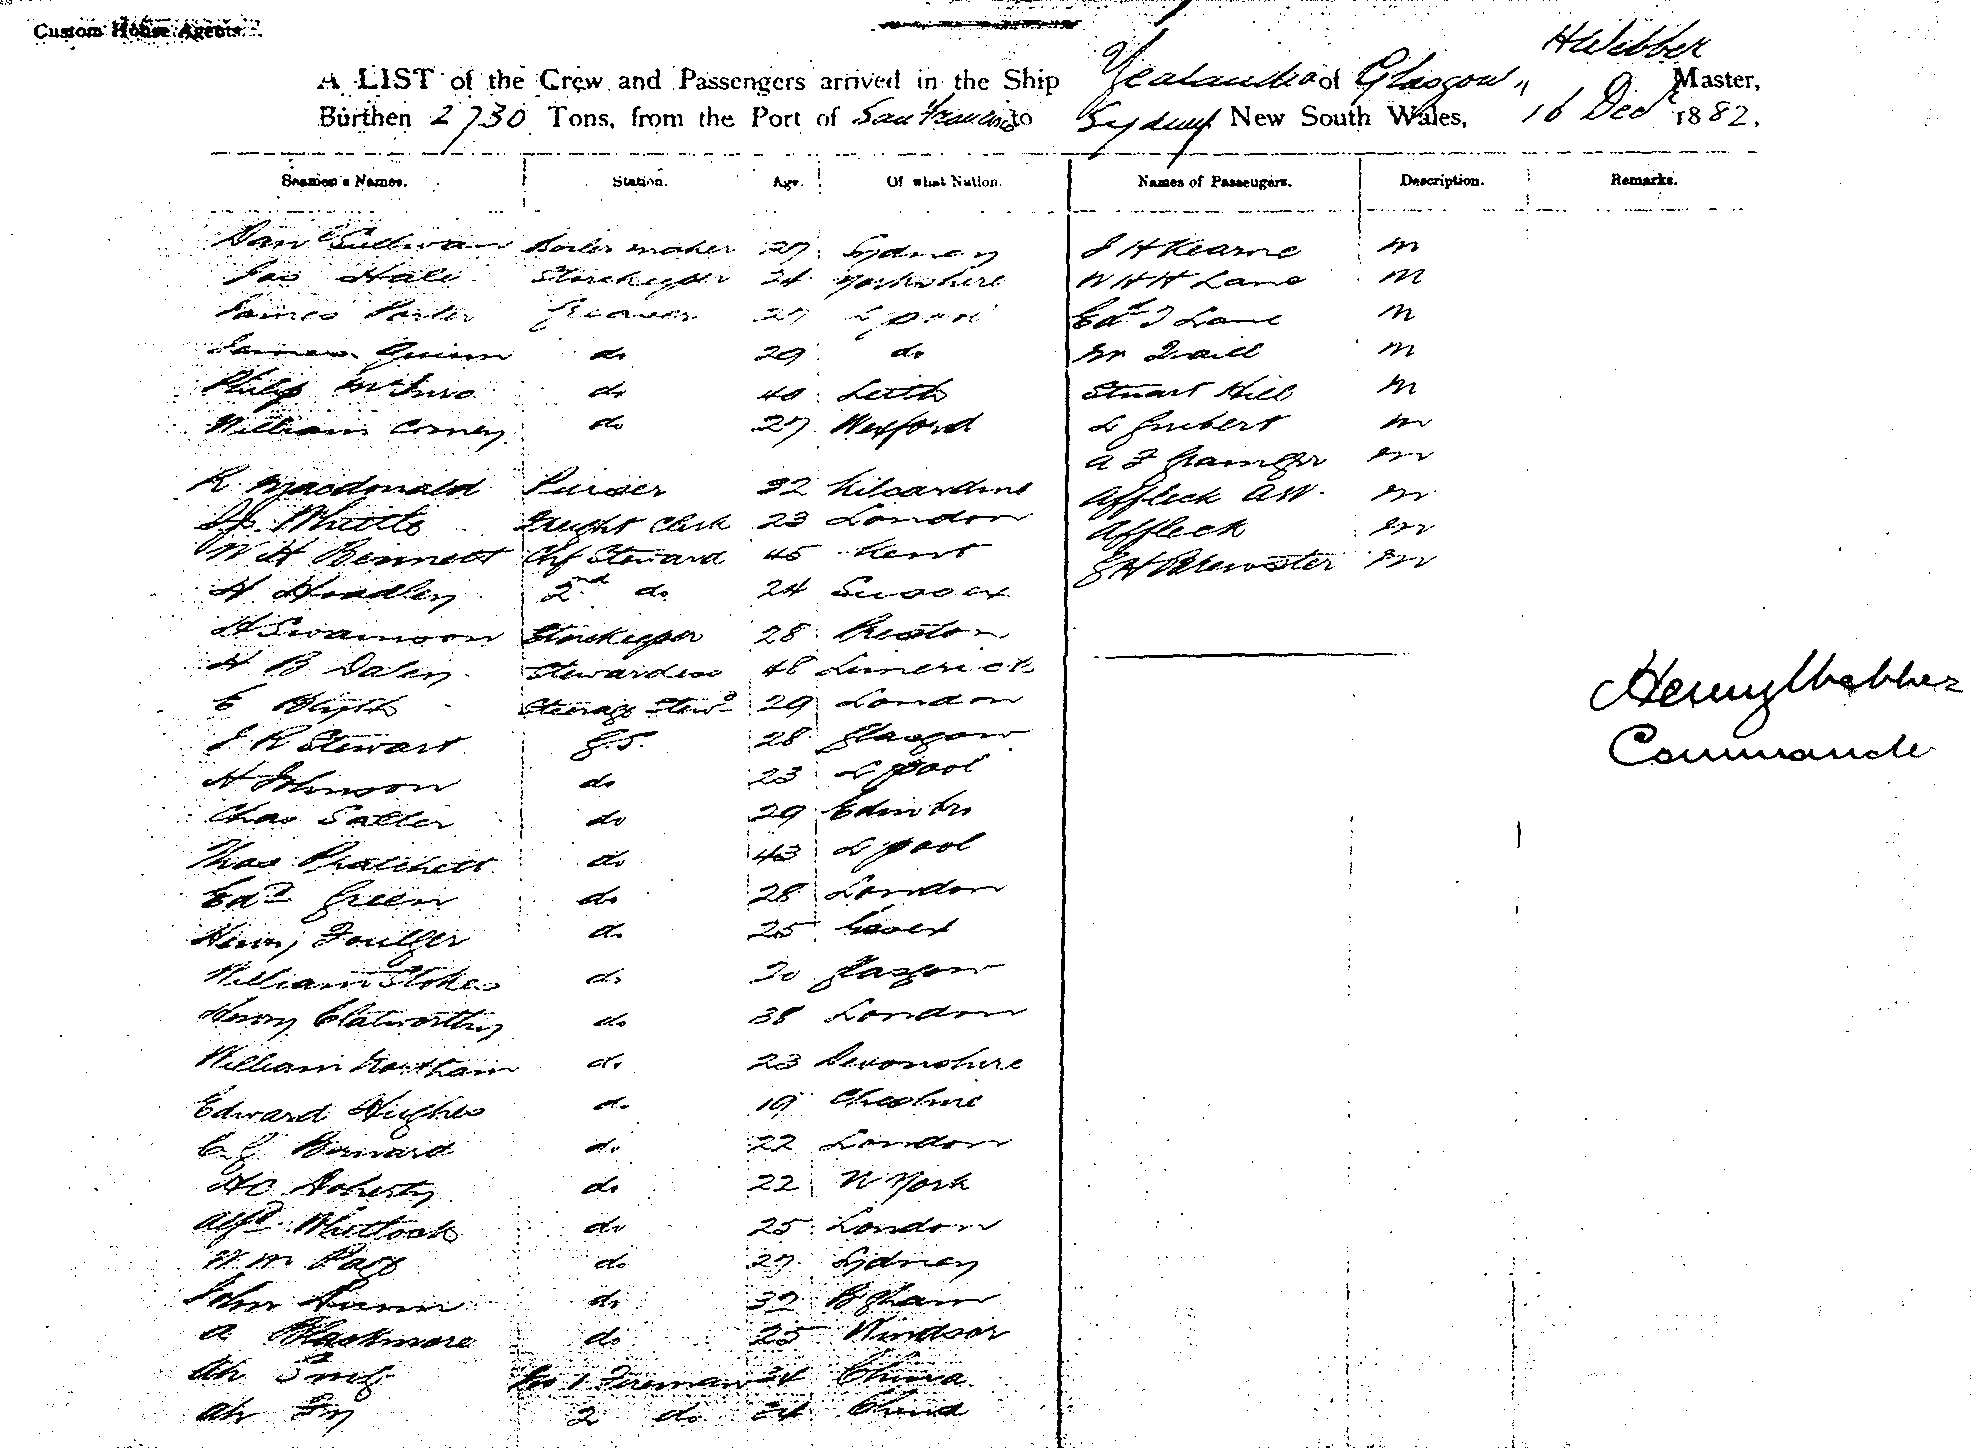 Custom House Agents.
H Webber
A LIST of the Crew and Passengers arrived in the Ship Zealandia of Glasgow, Master,
Burthen 2730 Tons, from the Port of San Francisco to Sydney New South Wales, 16 Decr 1882.
Seamen's Names. Station. Age. Of what Nation. Names of Passengers. Description. Remarks.
Danl Sullivan Boiler maker 27 Sydney J H Kearne m
Jas Hale Storekeeper 24 Yorkshire W H H Lane m
James Porter Greaser 27 L'pool Edd J Lane m
James Quinn do 29 do m
Philip do 40 Leith Stuart Hill m
William Corney do 27 Wexford L Guibert m
A F Grainger m
R Macdonald Purser 32 Kilcardine Affleck A W. m
Whittle Freight Clerk 23 London Affleck m
W H Bennett Chf Steward 45 Kent E H Brewster m
H Hoadley 2nd do 24 Sussex
H Swanson Storekeeper 28 Preston
H B Daley Stewardess 48 Limerick
E Blyth Steerage Stewd 29 London
Henry Webber
J R Stewart G.S. 28 Glasgow
Commander
H Johnson do 23 L'pool
Chas Salter do 29 Edinbro
Thos Pratchett do 43 L'pool
Edd Green do 28 London
Henry Foulger do 25 Essex
William Stokes do 20 Glasgow
Henry Clatworthy do 38 London
William do 23 Devonshire
Edward Hughes do 19 Cheshire
C G Bernard do 22 London
H C Doherty do 22 N York
Alfd Whitlock do 25 London
W m Page do 27 Sydney
John Dunn do 32 B'gham
A Blackmore do 25 Windsor
Ah Sing No 1 Fireman 34 China
Ah Fry 2 do 24 China